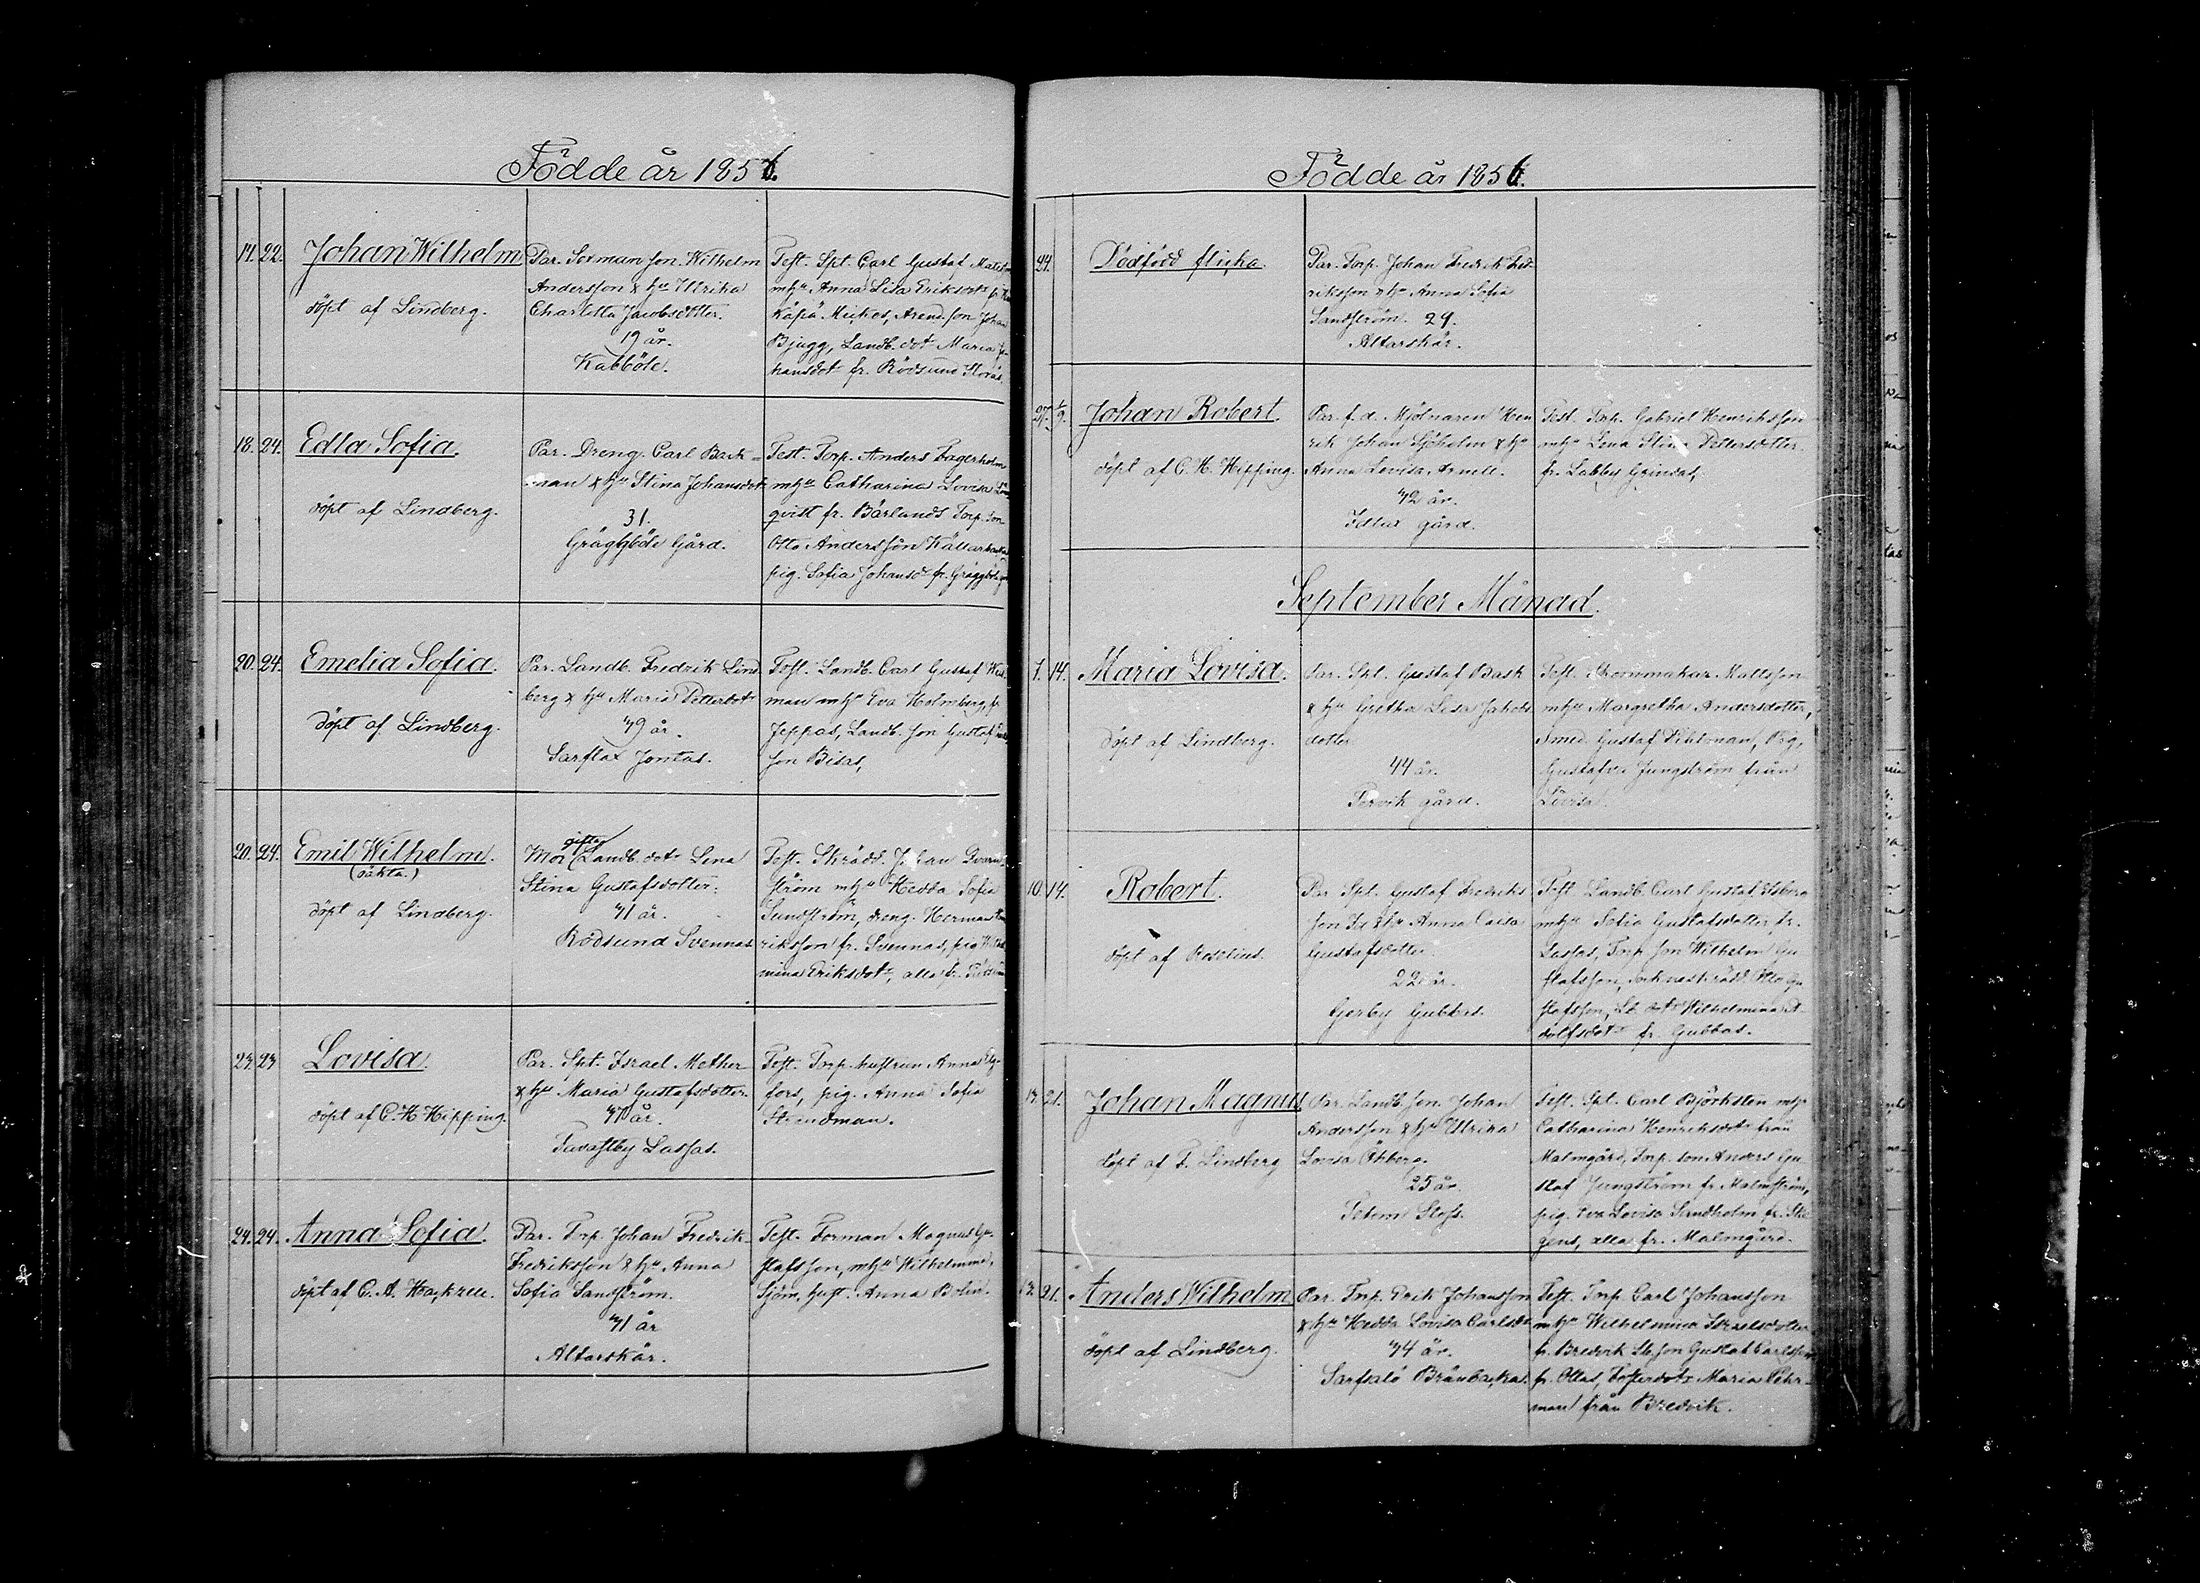 Födde år 1856.
14. 22. Johan Wilhelm
döpt af Lindberg.
Par. Sexman son. Wilhelm
Andersson & hu Ulrika
Charlotta Jacobsdotter.
19 år.
Kabböle.
Test. Spt. Carl Gustaf
mhu Anna Lisa Eriksdtr
Käpä Mickos, Arend. son Johan
Bjugg, Landb. dotr Maria Jo-
hansdotr fr. Rödsund Storås.
18. 24. Edla Sofia.
döpt af Lindberg.
Par. Dreng. Carl Back=
man & hu Stina Johansdotr
31.
Gräggböle Gård.
Test. Torp. Anders Fagerholm
mhu Catharina Lovisa
qvist fr. Bärlands Torp. son
Otto Andersson
pig. Sofia Johansdr fr. Gräggböle
20. 24. Emelia Sofia.
döpt af Lindberg.
Par. Landb. Fredrik Lind
berg & hu Maria Petterdotr
49 år.
Sarflax Jontas.
Test. Landb. Carl Gustaf West
man mhu Eva Holmberg, fr.
Jeppas, Landb. son Gustaf
son Bisas,
20. 24. Emil Wilhelm.
(oäkta.)
döpt af Lindberg.
gifta
Mor Landb. dotr Lena
Stina Gustafsdotter.
41 år.
Rödsund Svennas
Test. Skrädd. Johan Qvarn-
ström mhu Hedda Sofia
Sundström, dreng. Herman Hen
riksson fr. Svennas, pig Wilhel
mina Eriksdotr, alla fr. Rödsund
23. 23 Lovisa.
döpt af C. H Hipping.
Par. Spt. Israel Mether
& hu Maria Gustafsdotter.
40 år.
Tavastby Lassas.
Test. Torp. hustrun Anna Elg-
fors, pig. Anna Sofia
Strandman.
24. 24. Anna Sofia.
döpt af C. A.
Par. Torp. Johan Fredrik
Fredriksson & hu Anna
Sofia Sandström.
41 år
Altarskär.
Test. Forman Magnus Gu-
stafsson, mhu Wilhelmina
Sjöm, hust. Anna Bolin.
Födde år 1856.
24. Dödfödd flicka.
Par. Torp. Johan Fredrik Fred-
riksson & hu Anna Sofia
Sandström. 29.
Altarskär.
27. 1/9. Johan Robert.
döpt af C. H. Hipping.
Par. f. d. Mjölnaren Hen
rik Johan Sjöholm & hu
Anna Lovisa
42 år.
Idlax gård.
Test. Torp. Gabriel Henriksson
mhu Lena Stina Pettersdotter.
fr. Labby Grindas,
September Månad.
7. 14. Maria Lovisa.
döpt af Lindberg.
Par. Spt. Gustaf Bask
& hu Gretha Lisa Jakobs
dotter
44 år.
Tervik gård.
Test. Mattsson
mhu Margretha Andersdotter,
Smed. Gustaf Pig,
Gustafva Jungström från
Lovisa.
10. 14. Robert.
döpt af Roselius.
Par. Spt. Gustaf Fredriks
son & hu Anna Caisa
Gustafsdotter.
22 år.
Gerby Gubbas.
Test. Landb. Carl Gustaf
mhu Sofia Gustafsdotter fr.
Lassas, Torp. son Wilhelm Gu
stafsson, sockneskrädd. Otto Gu
stafsson, Lb. dotr Wilhelmina A
dolfsdotr fr. Gubbas.
21. Johan Magnus
döpt af F. Lindberg
Par. Landb. son. Johan
Andersson & hu Ulrika
Lovisa Öhberg.
25 år.
Tetom Stofs.
Test. Spt. Carl Björksten mhu
Catharina Henriksdotr från
Malmgård, Torp. son Anders Gu
staf Jungström fr. Malmström,
pig. Eva Lovisa Sundholm fr.
alla fr. Malmgård.
21. Anders Wilhelm
döpt af Lindberg.
Par. Torp. Erik Johansson
& hu Hedda Lovisa Carlsdr
44 år.
Sarfsalö Brännbackas.
Test. Torp. Carl Johansson
mhu Wilhelmina Israelsdotter
fr. Bredvik Lb. son Gustaf Karlsson
fr. Ollas, Fosterdotr Maria Pehr-
man från Bredvik.